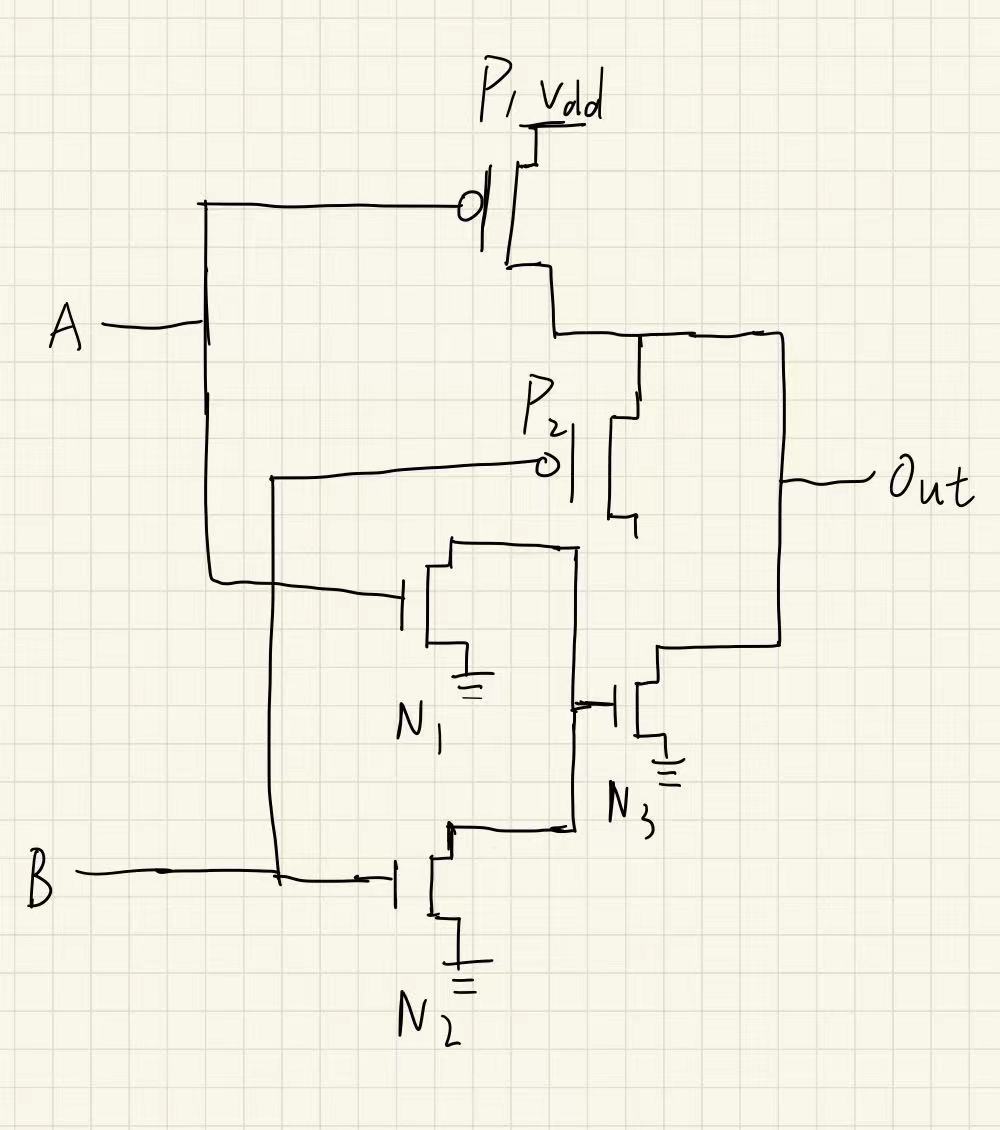 P1 Vdd
A
P2
Out
N1
N3
B
N2